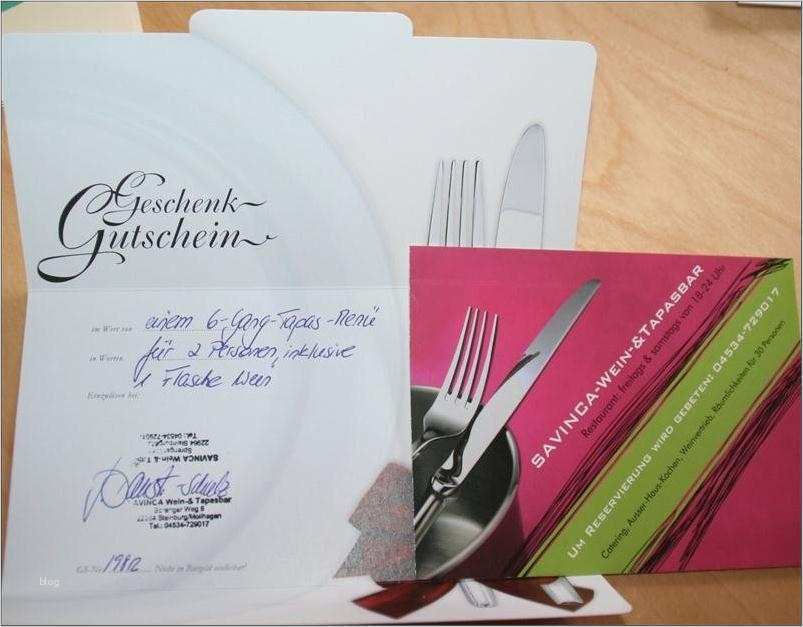 Geschenk-
Gutschein
im Wert von einem 6-Gang-Tapas-Menü
in Worten für 2 Personen, inklusive
1 Flasche Wein
Einzulösen bei:
SAVINCA Wein-& Tapasbar
Sprenger Weg
22964 Steinburg
Tel.: 04534-7290
AVINCA Wein-& Tapasbar
Sprenger Weg 5
22964 Steinburg/Mollhagen
Tel.: 04534-729017
GS-Nr. Nicht in Bargeld einlösbar!
SAVINCA-WEIN-&TAPASBAR
Restaurant: freitags & samstags von 18-24 Uhr
UM RESERVIERUNG WIRD GEBETEN: 04534-729017
Catering, Ausser-Haus-Kochen, Weinvertrieb, Räumlichkeiten für 30 Personen
blog